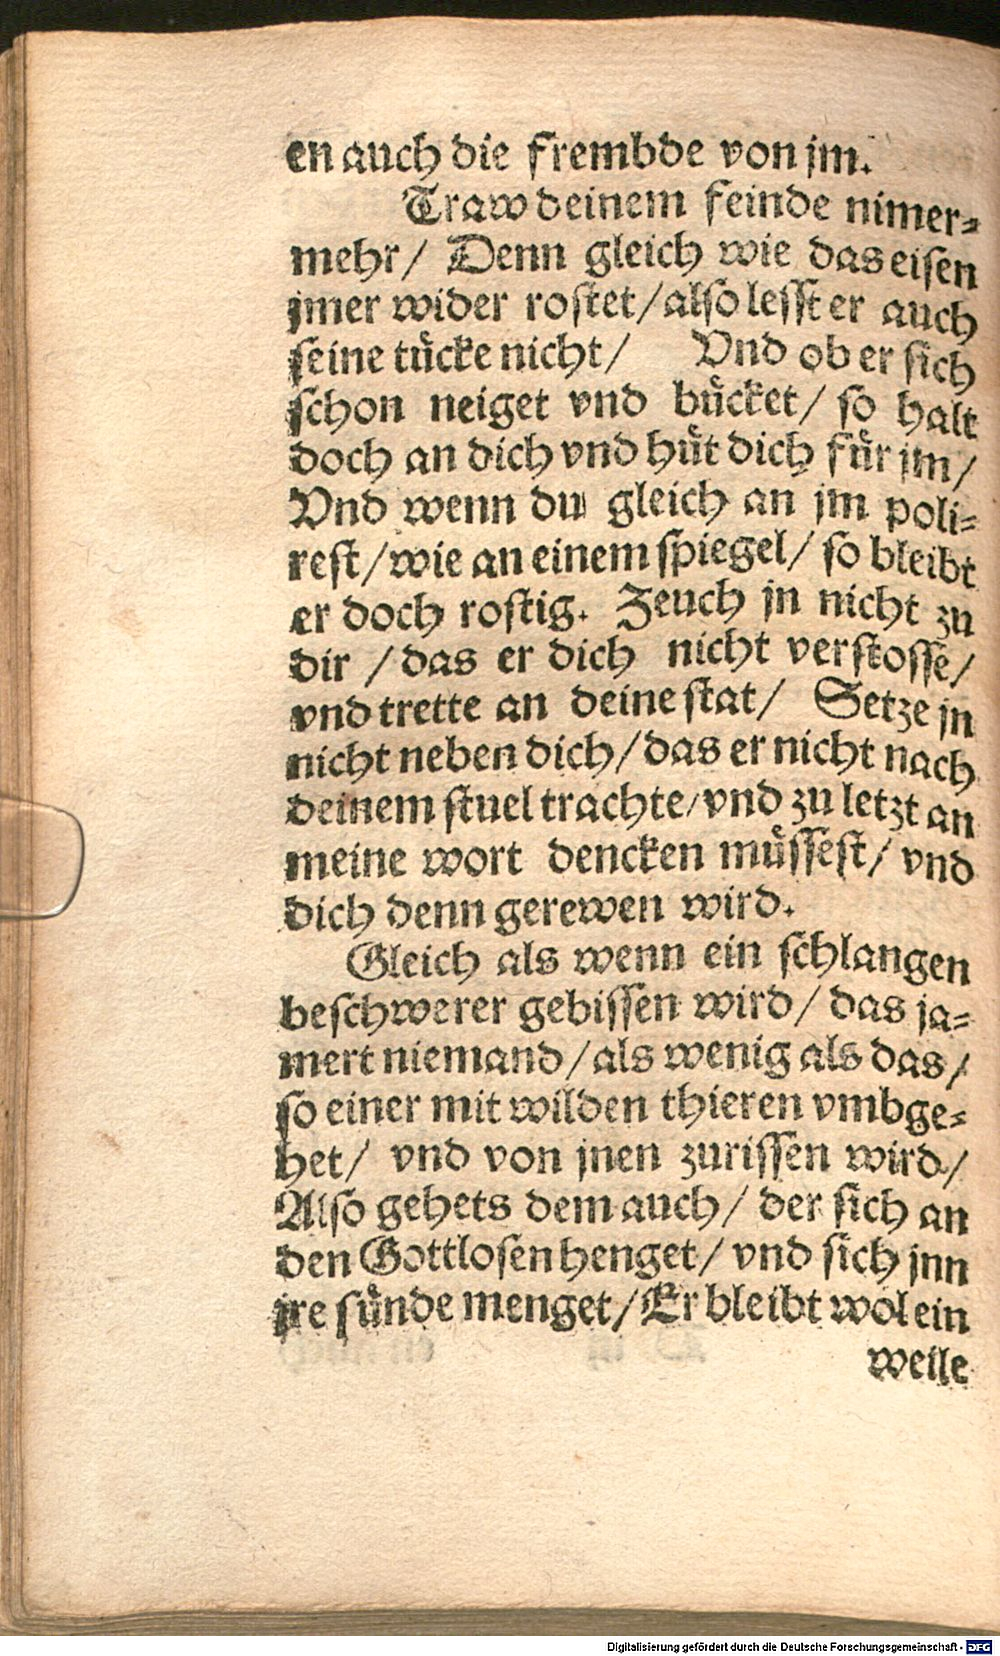 en auch die frembde von jm.
Traw deinem feinde nimer⸗
mehr/ Denn gleich wie das eisen
jmer wider rostet/also lesst er auch
seine tücke nicht/ Vnd ob er sich
schon neiget vnd bücket/ so halt
doch an dich vnd hüt dich für jm/
Vnd wenn du gleich an jm poli⸗
rest/wie an einem spiegel/ so bleibt
er doch rostig. Zeuch jn nicht zu
dir /das er dich nicht verstosse/
vnd trette an deine stat/ Setze jn
nicht neben dich/das er nicht nach
deinem stuel trachte/vnd zu letzt an
meine wort dencken müssest/ vnd
dich denn gerewen wird.
Gleich als wenn ein schlangen
beschwerer gebissen wird/ das ja⸗
mert niemand/als wenig als das/
so einer mit wilden thieren vmbge⸗
het/ vnd von jnen zurissen wird/
Also gehets dem auch/ der sich an
den Gottlosen henget/ vnd sich jnn
jre sünde menget/Er bleibt wol ein
weile
Digitalisierung gefördert durch die Deutsche Forschungsgemeinschaft - DFG